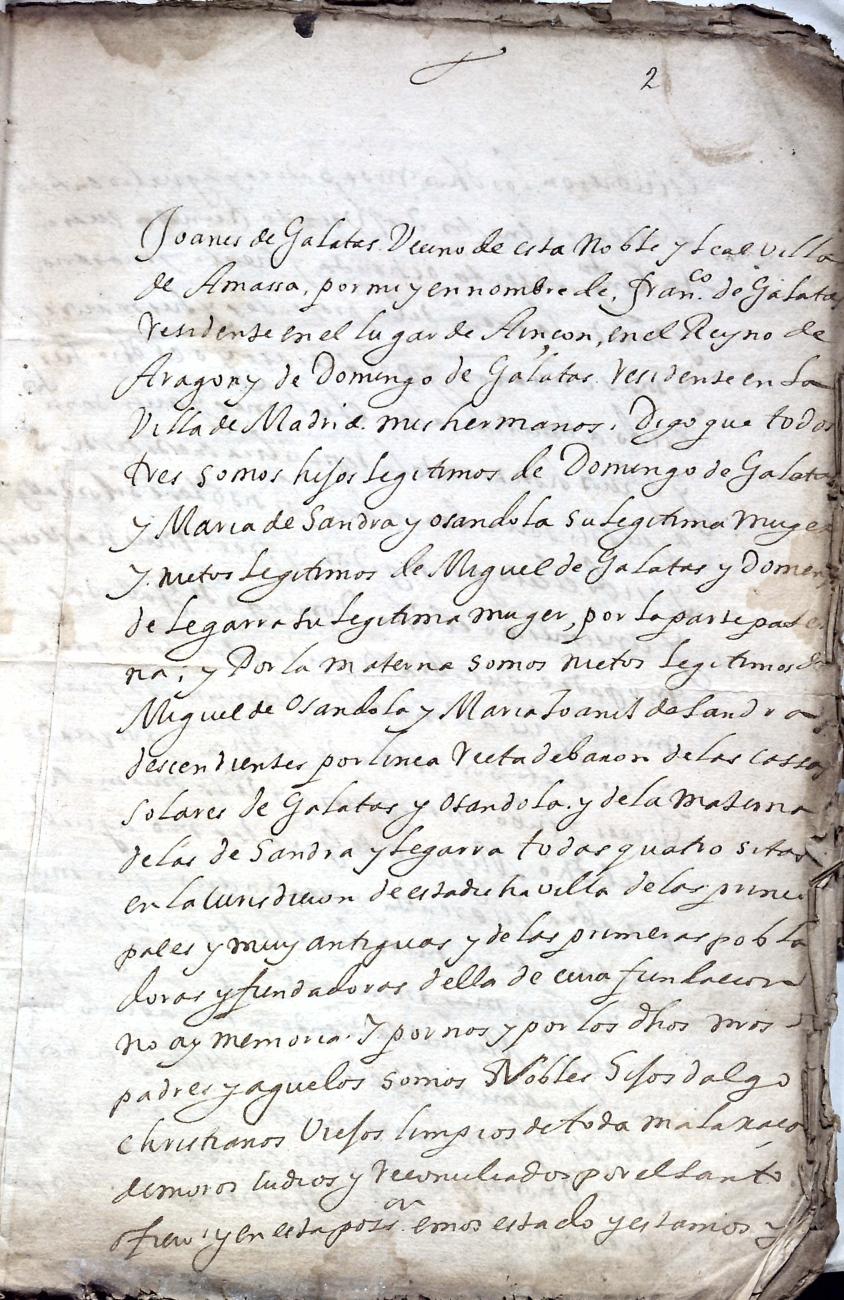 2
Joanes de Galatas. Vecino de esta Noble y Leal villa
de Amassa, por mi y en nombre de, Fran.co de Galatas
residente en el lugar de Ainçon, en el Reyno de
Aragon y de Domingo de Galatas. residente en la
Villa de Madrid. mis hermanos. Digo que todos
tres somos hijos legitimos de Domingo de Galatas
y Maria de Sandra y osandola su legitima muger
y. nietos legitimos de Miguel de Galatas y Domen
de Legarra su legitima muger, por la parte pate
na; y Por la materna somos nietos legitimos de
Miguel de Osandola y Maria Joanis de Sandra
descendientes por linea recta de baron de las cassas
solares de Galatas y Osandola. y de la materna
de las de Sandra y Legarra todas quatro sitas
en la Jurisdicion de esta dicha villa de las princi
pales y muy antiguas y de las primeras pobla
doras y fundadoras della de cuia fundacion
no ay memoria. Y por nos y por los dhos nros
padres y aguelos somos Nobles Hijos dalgo
christianos viejos limpios de toda mala raça
de moros Judios y reconciliados por el santo
oficio; y en esta poss.on emos estado y estamos y